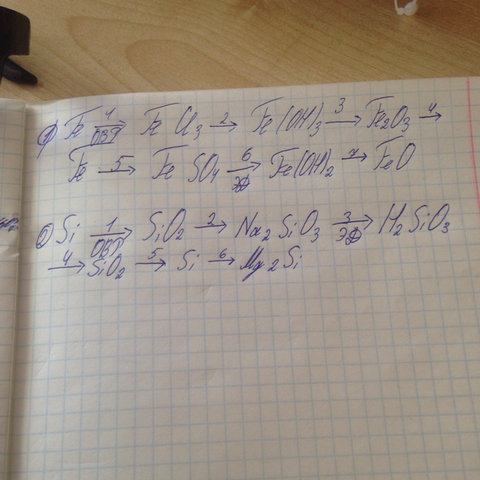 1) Fe 1→ ОВР FeCl3 2→ Fe(OH)3 3→ Fe2O3 4→
Fe 5→ FeSO4 6→ ЭД Fe(OH)2 7→ FeO
2) Si 1→ ОВР SiO2 2→ Na2SiO3 3→ ЭД H2SiO3
4→ SiO2 5→ Si 6→ Mg2Si